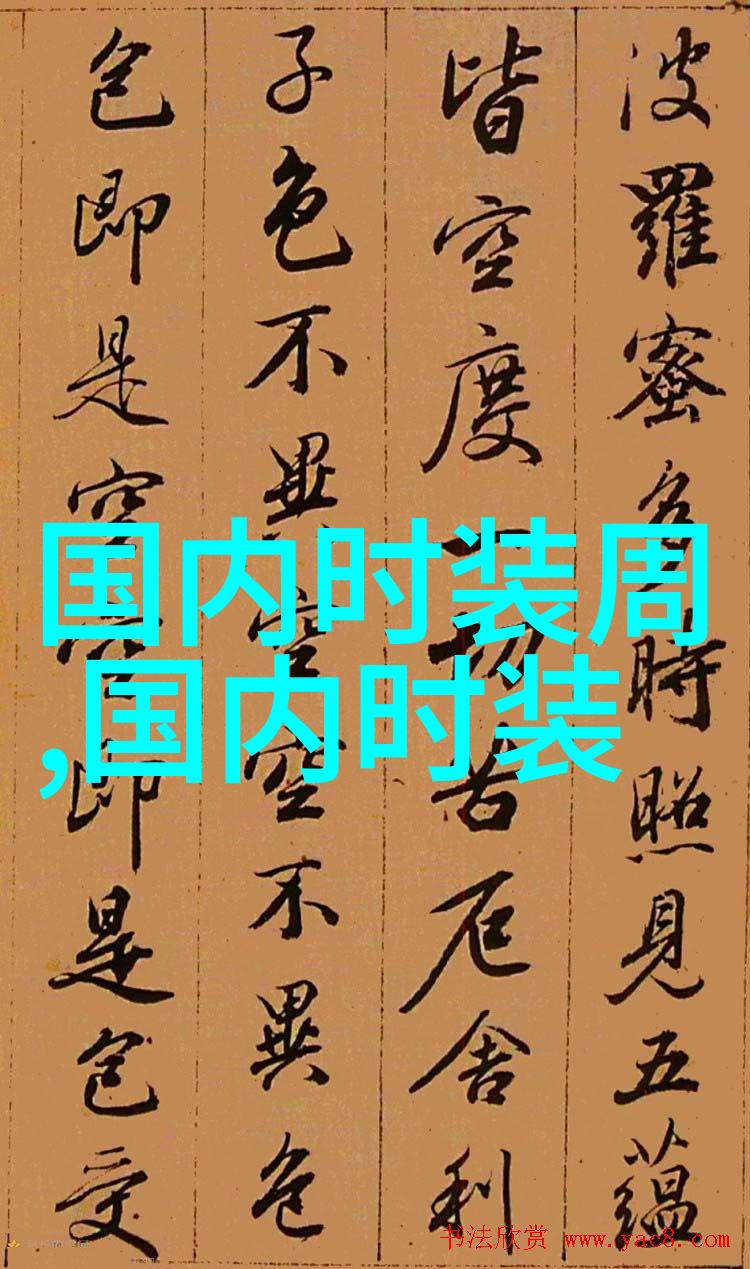 波羅蜜多時照見五蘊
皆空度一切苦厄舍利
子色不異空空不異色
色即是空空即是色受
国内时装周
,国内时装
书法欣赏 www.yac8.com